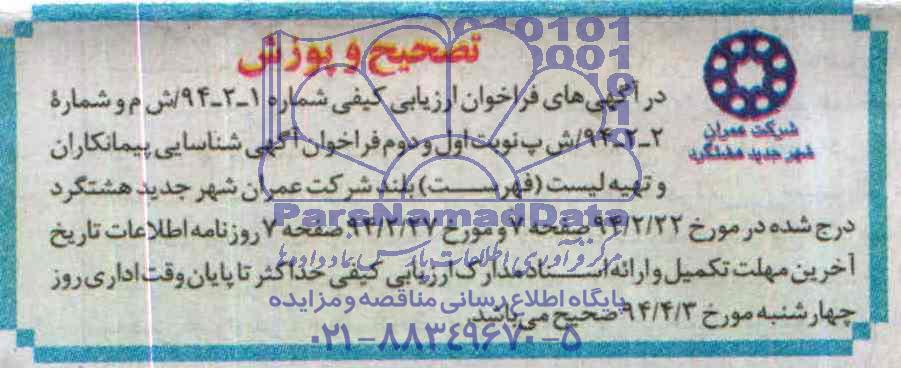 تصحیح و پوزش
شرکت عمران
شهر جدید هشتگرد
در آگهی های فراخوان ارزیابی کیفی شماره ۱-۲-۹۴/ش م و شمارهٔ
۲-۲-۹۴/ش پ نوبت اول و دوم فراخوان آگهی شناسایی پیمانکاران
و تهیه لیست (فهرست) بلند شرکت عمران شهر جدید هشتگرد
درج شده در مورخ ۹۴/۲/۲۲ صفحه ۷ و مورخ ۹۴/۲/۲۷ صفحه ۷ روزنامه اطلاعات تاریخ
آخرین مهلت تکمیل و ارائه اسناد مدارک ارزیابی کیفی حداکثر تا پایان وقت اداری روز
چهارشنبه مورخ ۹۴/۴/۳ صحیح می باشد.
ParsNamadData
مرکز فرآوری اطلاعات پارس نماد داده ها
پایگاه اطلاع رسانی مناقصه و مزایده
۰۲۱-۸۸۳۴۹۶۷۰-۵